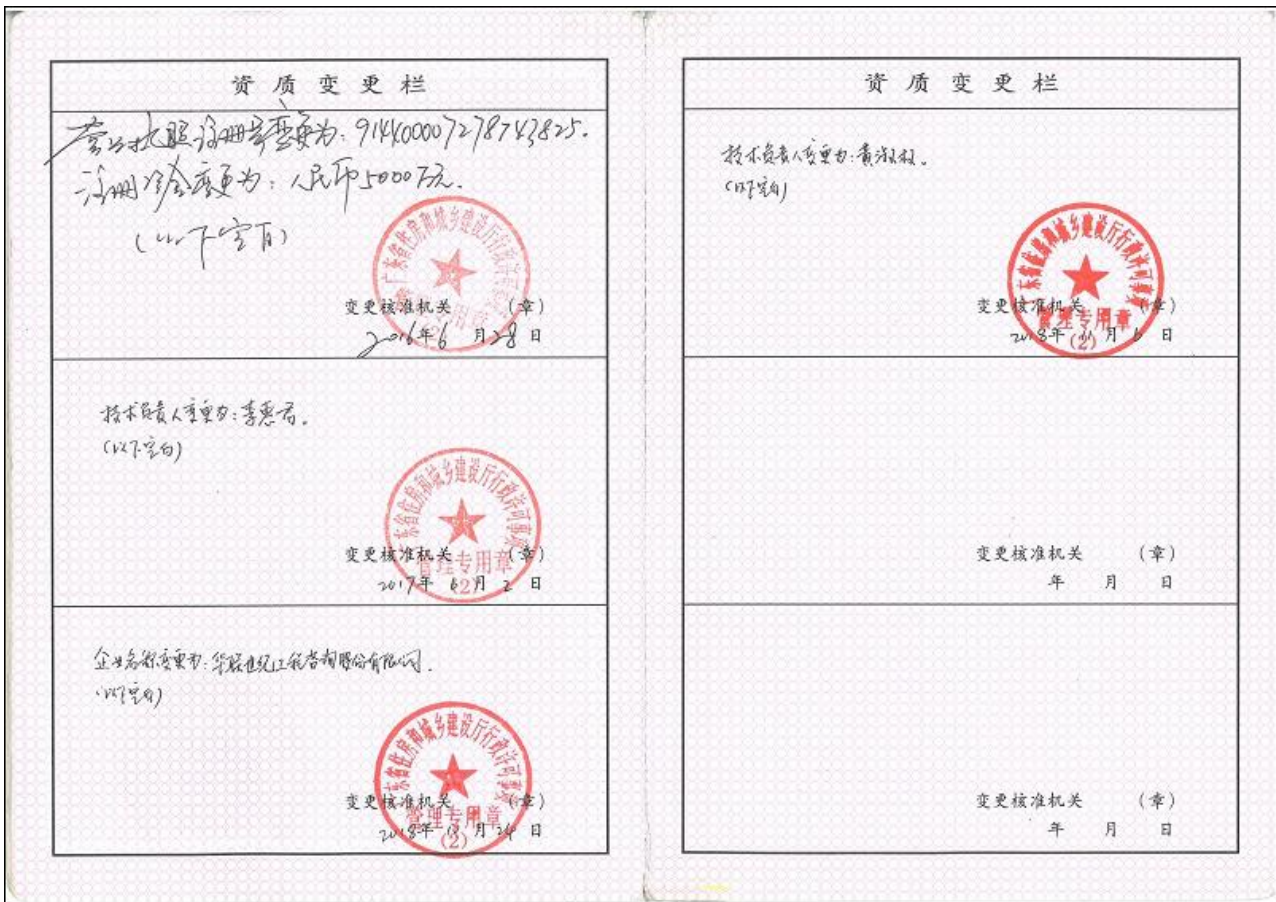 资质变更栏
营业执照注册号变更为：914400007278743825.
注册资金变更为：人民币5000万元.
（以下空白）
广东省住房和城乡建设厅行政许可事项
管理专用章
(2)
变更核准机关 （章）
2016年6月28日
技术负责人变更为：李惠君。
（以下空白）
广东省住房和城乡建设厅行政许可事项
管理专用章
(2)
变更核准机关 （章）
2017年6月2日
企业名称变更为：华联世纪工程咨询股份有限公司.
（以下空白）
广东省住房和城乡建设厅行政许可事项
管理专用章
(2)
变更核准机关 （章）
2018年10月24日
资质变更栏
技术负责人变更为：黄淑
（以下空白）
广东省住房和城乡建设厅行政许可事项
管理专用章
(2)
变更核准机关 （章）
2018年11月6日
变更核准机关 （章）
年 月 日
变更核准机关 （章）
年 月 日